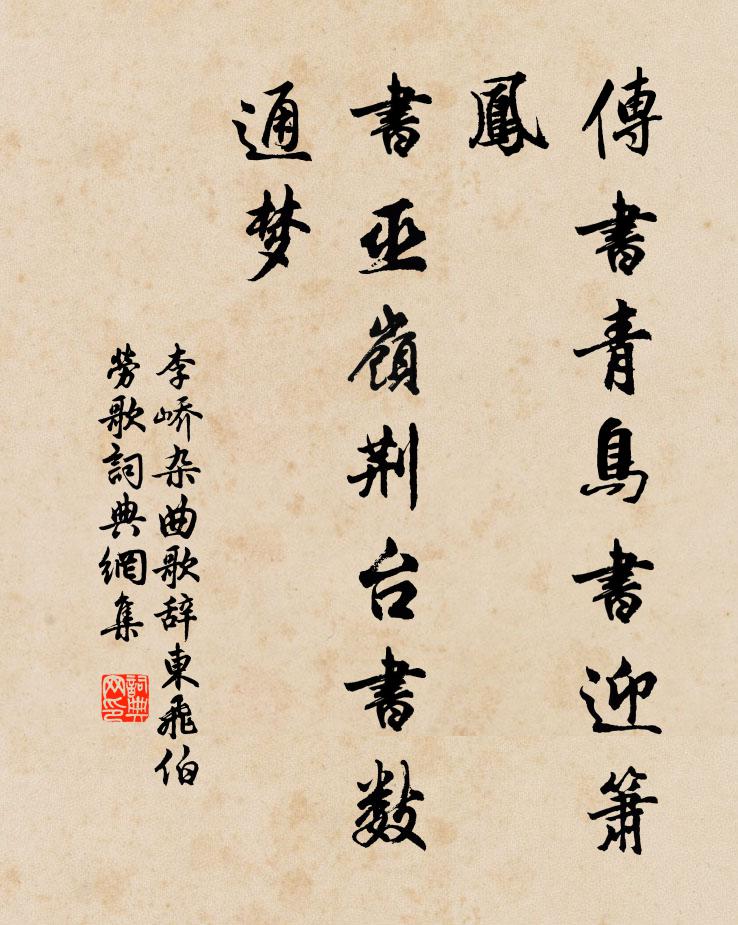 傳書青鳥書迎簫
鳳
書巫嶺荆台書数
通梦
李嶠杂曲歌辞東飛伯
勞歌詞典網集
詞典
网印